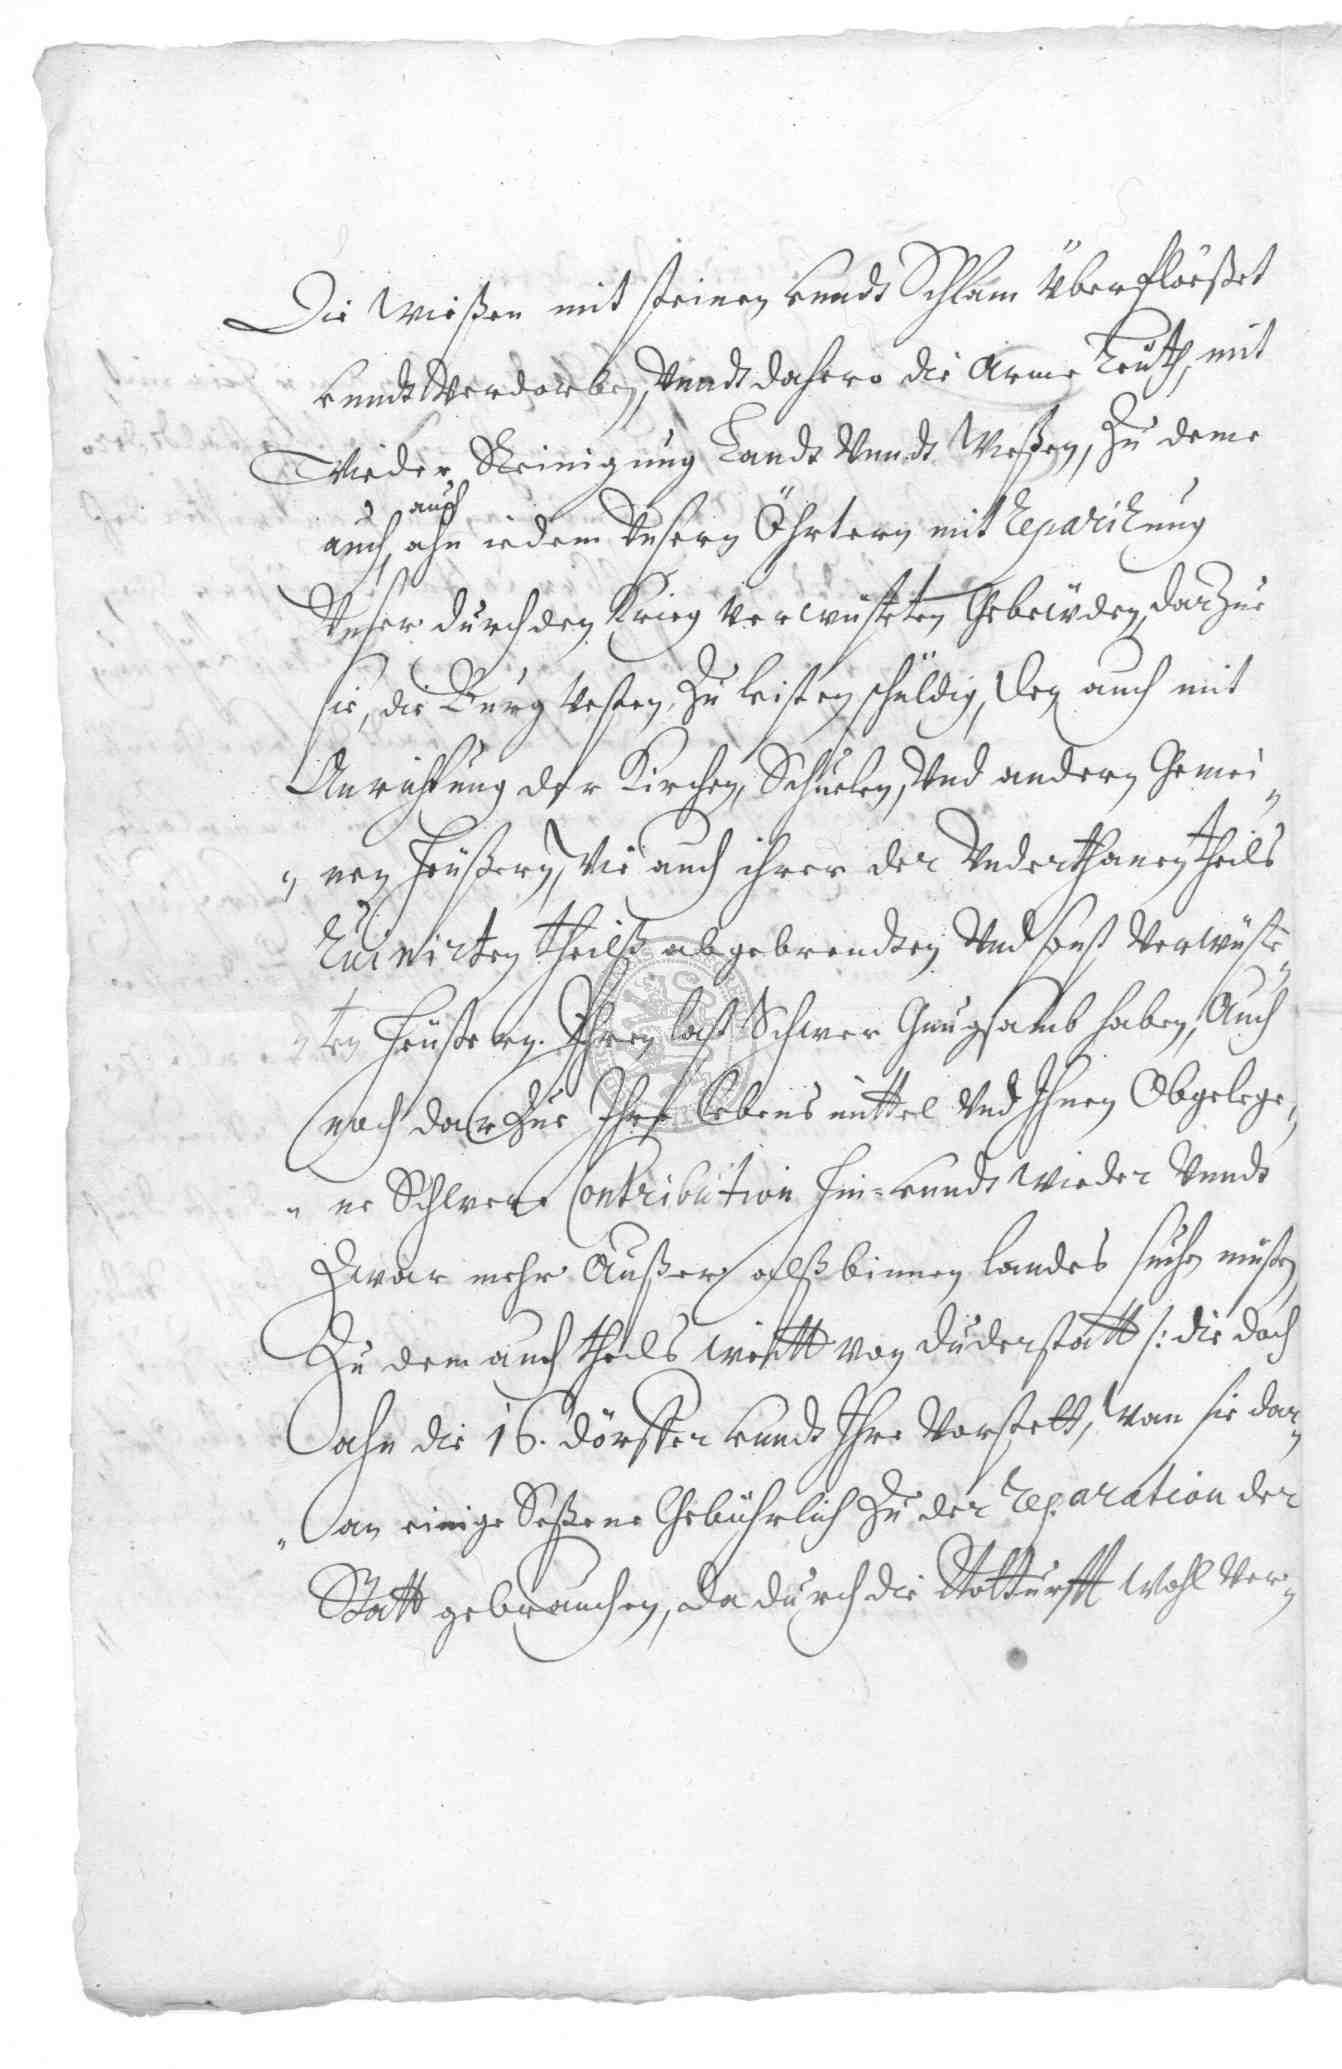 Die Wießen mit steinen unndt Schlam überflößet
unndt verdorben, unndt dahero die Arme Leuth, mit
Wieder Reinigung Landt unndt Wießen, Zu deme
auch
auch, ahn iedem unsern Öhrtern mit reparirung
unser durch den Krieg verwüsteten Gebewden, darzue
sie, die Burg Vesten, Zu leisten schüldig, den auch mit
Anrichtung der Kirchen, Schuelen, Und andern Gemei„
„nen Heüßern, Wie auch ihrer der Underthanen theils
Ruinirten theilß abgebrendten Und sonst Verwüste„
„ten Heüßern. Ihren last Schwer Gnugsamb haben, Auch
noch darZue Ihre lebens mittel Und Ihnen Obgelege„
„ne Schwere Contribution hin- unndt wieder Unndt
Zwar mehr Außer alß binnen landes suchen müßen
Zu dem auch theils weitt von Duderstatt /: die doch
ahn die 16. dörffer unndt Ihre Vorstett, Wan sie dar„
„an einige Seßene Gebührlich Zu der reparation der
Statt gebrauchen, da durch die Notturfft Wohl Ver„